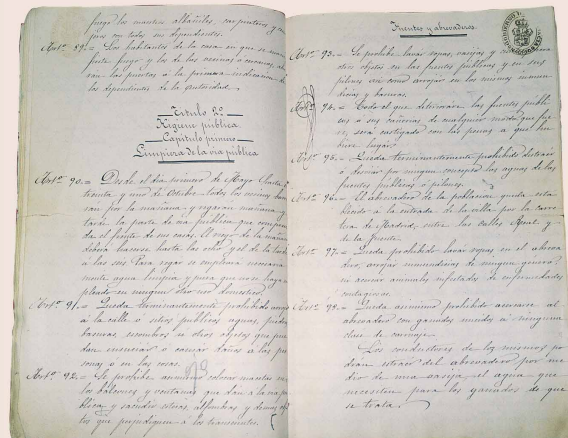 fuego los maestros albañiles, carpinteros y
jos con todos sus dependientes.
Artº 89.= Los habitantes de la casa en que se
fuego, y los de las vecinas o cercanas,
las puertas á la primera indicacion de
los dependientes de la autoridad.
Titulo 2º
Higiene publica
Capitulo primero
Limpieza de la via publica
Artº 90.= Desde el dia primero de Mayo hasta
treinta y uno de Octubre todos los vecinos
por la mañana y regarán mañana y
tarde la parte de via publica que
da el frente de sus casas. El riego de la mañana
deberá hacerse hasta las ocho y el de la tarde
á las seis. Para regar se empleará
mente agua limpia y pura que no se haya
pleado en ningun otro uso domestico.
Artº 91.= Queda terminantemente prohibido
á la calle ó sitios publicos aguas,
basuras, escombros u otros objetos que
dan ensuciar ó causar daños a las
sonas y a las cosas.
Artº 92.= Se prohibe colocar macetas en
los balcones y ventanas que dan a la
blica y sacudir esteras, alfombras y demas
tos que perjudiquen á los transeuntes.
Fuentes y abrevaderos.
Artº 93.= Se prohibe lavar ropas, vasijas y
otros objetos en las fuentes publicas y en sus
pilones asi como arrojar en los mismos inmun-
dicias y basuras.
Artº 94.= Todo el que deteriorase las fuentes públi-
cas ó sus cañerias de cualquier modo que fue-
se, será castigado con las penas a que
biere lugar.
Artº 95.= Queda terminantemente prohibido distraer
ó desviar por ningun concepto las aguas de las
fuentes publicas ó pilones.
Artº 96.= El abrevadero de la poblacion queda esta-
blecido á la entrada de la villa por la carre-
tera de Madrid, entre las calles Real y
de la Fuente.
Artº 97.= Queda prohibido lavar ropas en el abreva-
dero, arrojar inmundicias de ningun genero
acercar animales infestados de enfermedades
contagiosas.
Artº 98.= Queda asimismo prohibido acercarse al
abrevadero con ganados uncidos á ninguna
clase de carruaje.
Los conductores de los mismos po-
drán extraer del abrevadero por me-
dio de una vasija el agua que
necesiten para los ganados de que
se trata.